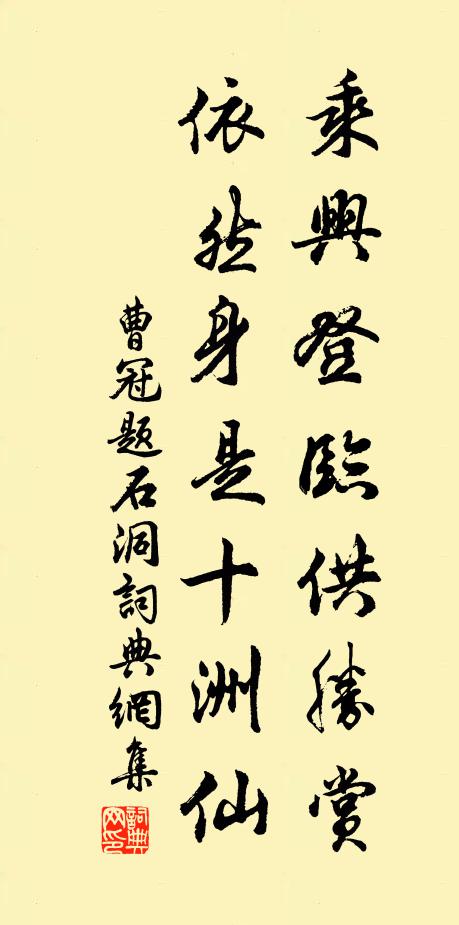 乘興登臨供勝賞
依然身是十洲仙
曹冠題石洞詞典網集
詞典網印